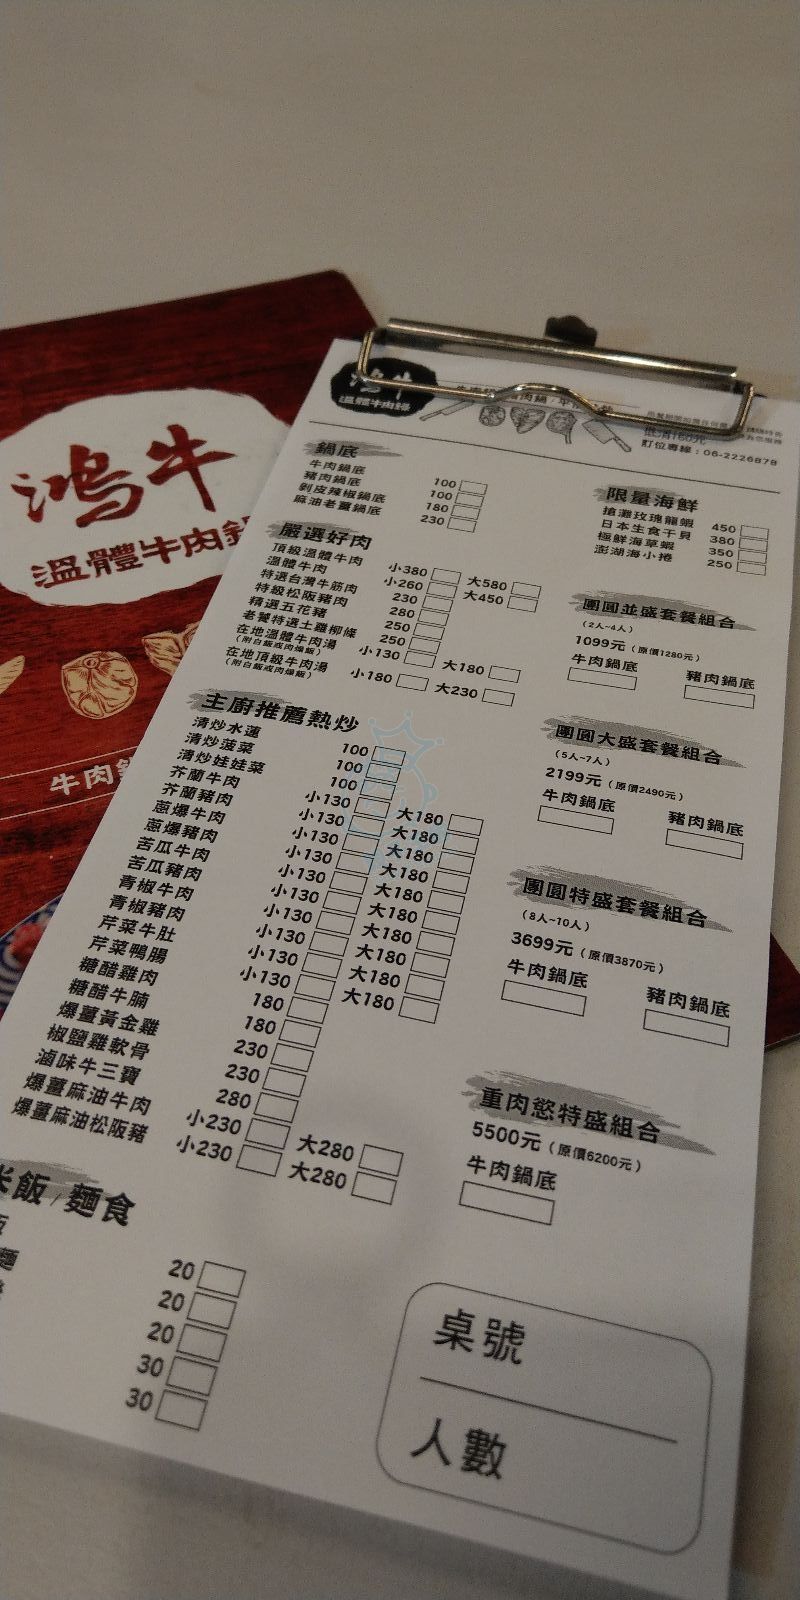 鴻牛
溫體牛肉鍋
牛肉鍋
鴻牛
溫體牛肉鍋
低消160元
訂位專線：06-2226878
鍋底
牛肉鍋底 100
豬肉鍋底 100
剝皮辣椒鍋底 180
麻油老薑鍋底 230
嚴選好肉
頂級溫體牛肉 小380 大580
溫體牛肉 小260 大450
特選台灣牛筋肉 230
特級松阪豬肉 280
精選五花豬 250
老饕特選土雞柳條 250
在地溫體牛肉湯 小130 大180
(附白飯或肉燥飯)
在地頂級牛肉湯 小180 大230
(附白飯或肉燥飯)
主廚推薦熱炒
清炒水蓮 100
清炒菠菜 100
清炒娃娃菜 100
芥蘭牛肉 小130 大180
芥蘭豬肉 小130 大180
蔥爆牛肉 小130 大180
蔥爆豬肉 小130 大180
苦瓜牛肉 小130 大180
苦瓜豬肉 小130 大180
青椒牛肉 小130 大180
青椒豬肉 小130 大180
芹菜牛肚 小130 大180
芹菜鴨腸 小130 大180
糖醋雞肉 180
糖醋牛腩 180
爆薑黃金雞 230
椒鹽雞軟骨 230
滷味牛三寶 280
爆薑麻油牛肉 小230 大280
爆薑麻油松阪豬 小230 大280
米飯/麵食
20
20
20
30
30
限量海鮮
搶灘玫瑰龍蝦 450
日本生食干貝 380
極鮮海草蝦 350
澎湖海小捲 250
團圓並盛套餐組合
(2人~4人)
1099元（原價1280元）
牛肉鍋底 豬肉鍋底
團圓大盛套餐組合
(5人~7人)
2199元（原價2490元）
牛肉鍋底 豬肉鍋底
團圓特盛套餐組合
(8人~10人)
3699元（原價3870元）
牛肉鍋底 豬肉鍋底
重肉慾特盛組合
5500元（原價6200元）
牛肉鍋底
桌號
人數